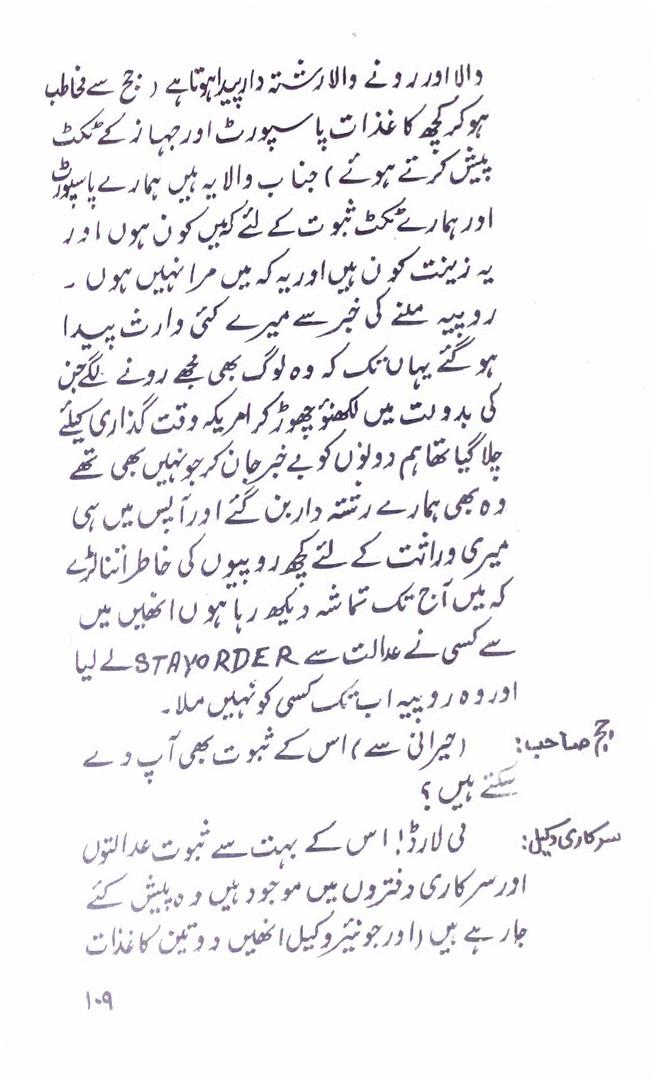 والا اور رونے والا رشتہ دار پیدا ہوتا ہے ( جج سے مخاطب
ہو کر کچھ کاغذات پاسپورٹ اور جہاز کے ٹکٹ
پیش کرتے ہوئے ) جناب والا یہ ہیں ہمارے پاسپورٹ
اور ہمارے ٹکٹ ثبوت کے لئے کہ میں کون ہوں اور
یہ زینت کون ہیں اور یہ کہ میں مرا نہیں ہوں ۔
روپیہ ملنے کی خبر سے میرے کئی وارث پیدا
ہو گئے یہاں تک کہ وہ لوگ بھی مجھے رونے لگے جن
کی بدولت میں لکھنؤ چھوڑ کر امریکہ وقت گذاری کیلئے
چلا گیا تھا ہم دونوں کو بے خبر جان کر جو نہیں بھی تھے
وہ بھی ہمارے رشتہ دار بن گئے اور آپس میں ہی
میری وراثت کے لئے کچھ روپیوں کی خاطر اتنا لڑے
کہ میں آج تک تماشہ دیکھ رہا ہوں انھیں میں
سے کسی نے عدالت سے STAYORDER لے لیا
اور وہ روپیہ اب تک کسی کو نہیں ملا۔
جج صاحب: (حیرانی سے) اس کے ثبوت بھی آپ دے
سکتے ہیں ؟
سرکاری وکیل: می لارڈ! اس کے بہت سے ثبوت عدالتوں
اور سرکاری دفتروں میں موجود ہیں وہ پیش کئے
جا رہے ہیں (اور جونیئر وکیل انھیں دو تین کاغذات
۱۰۹